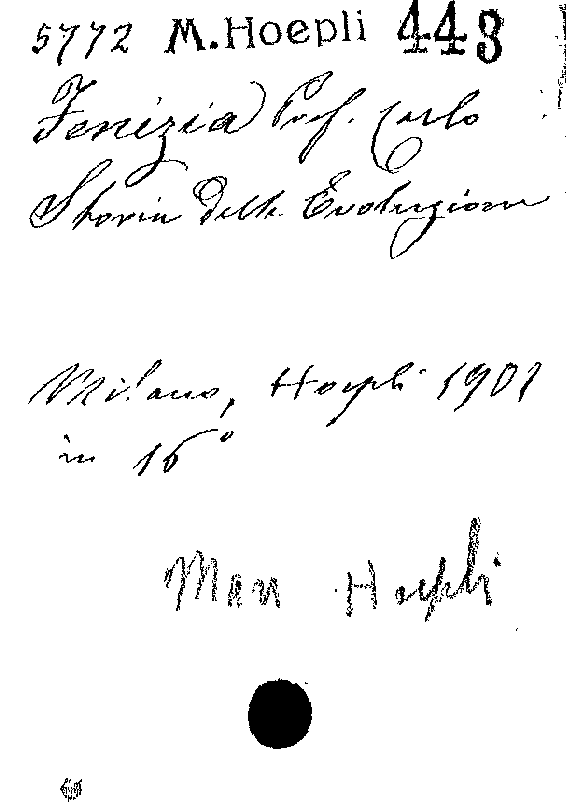 5772 M. Hoepli 443
Fenizia Prof. Carlo
Storia della Evoluzione
Milano, Hoepli 1901
in 16°
Man Hoepli